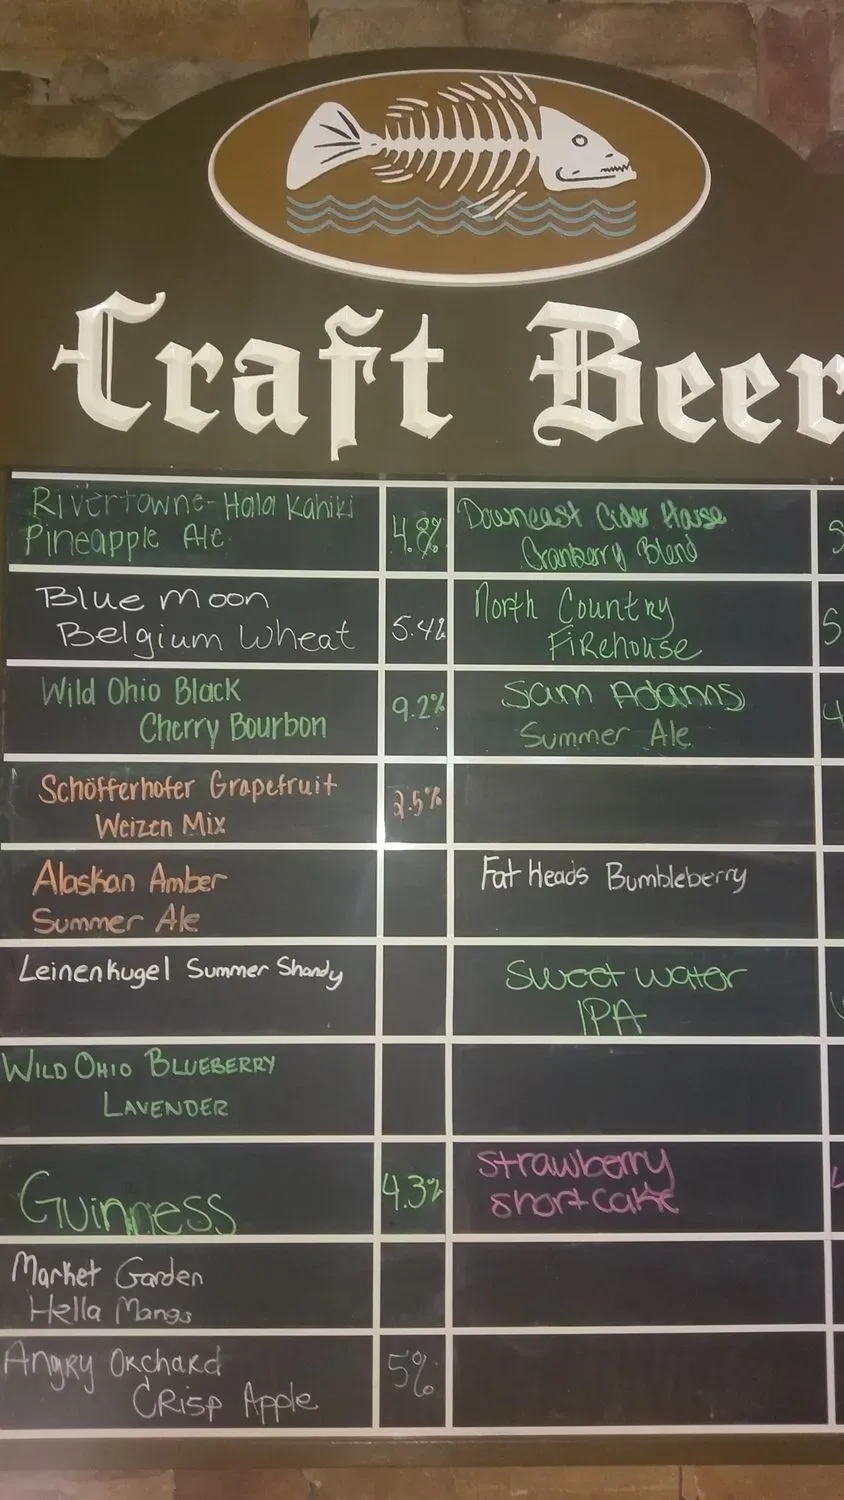 Craft Beer
Rivertowne-Hala Kahiki
Pineapple Ale
4.8%
Downeast Cider House
Cranberry Blend
Blue Moon
Belgium Wheat
5.4%
North Country
Firehouse
Wild Ohio Black
Cherry Bourbon
9.2%
Sam Adams
Summer Ale
Schöfferhofer Grapefruit
Weizen Mix
2.5%
Alaskan Amber
Summer Ale
Fat Heads Bumbleberry
Leinenkugel Summer Shandy
Sweet Water
IPA
WILD OHIO BLUEBERRY
LAVENDER
Guinness
4.3%
Strawberry
Shortcake
Market Garden
Hella Mango
Angry Orchard
Crisp Apple
5%